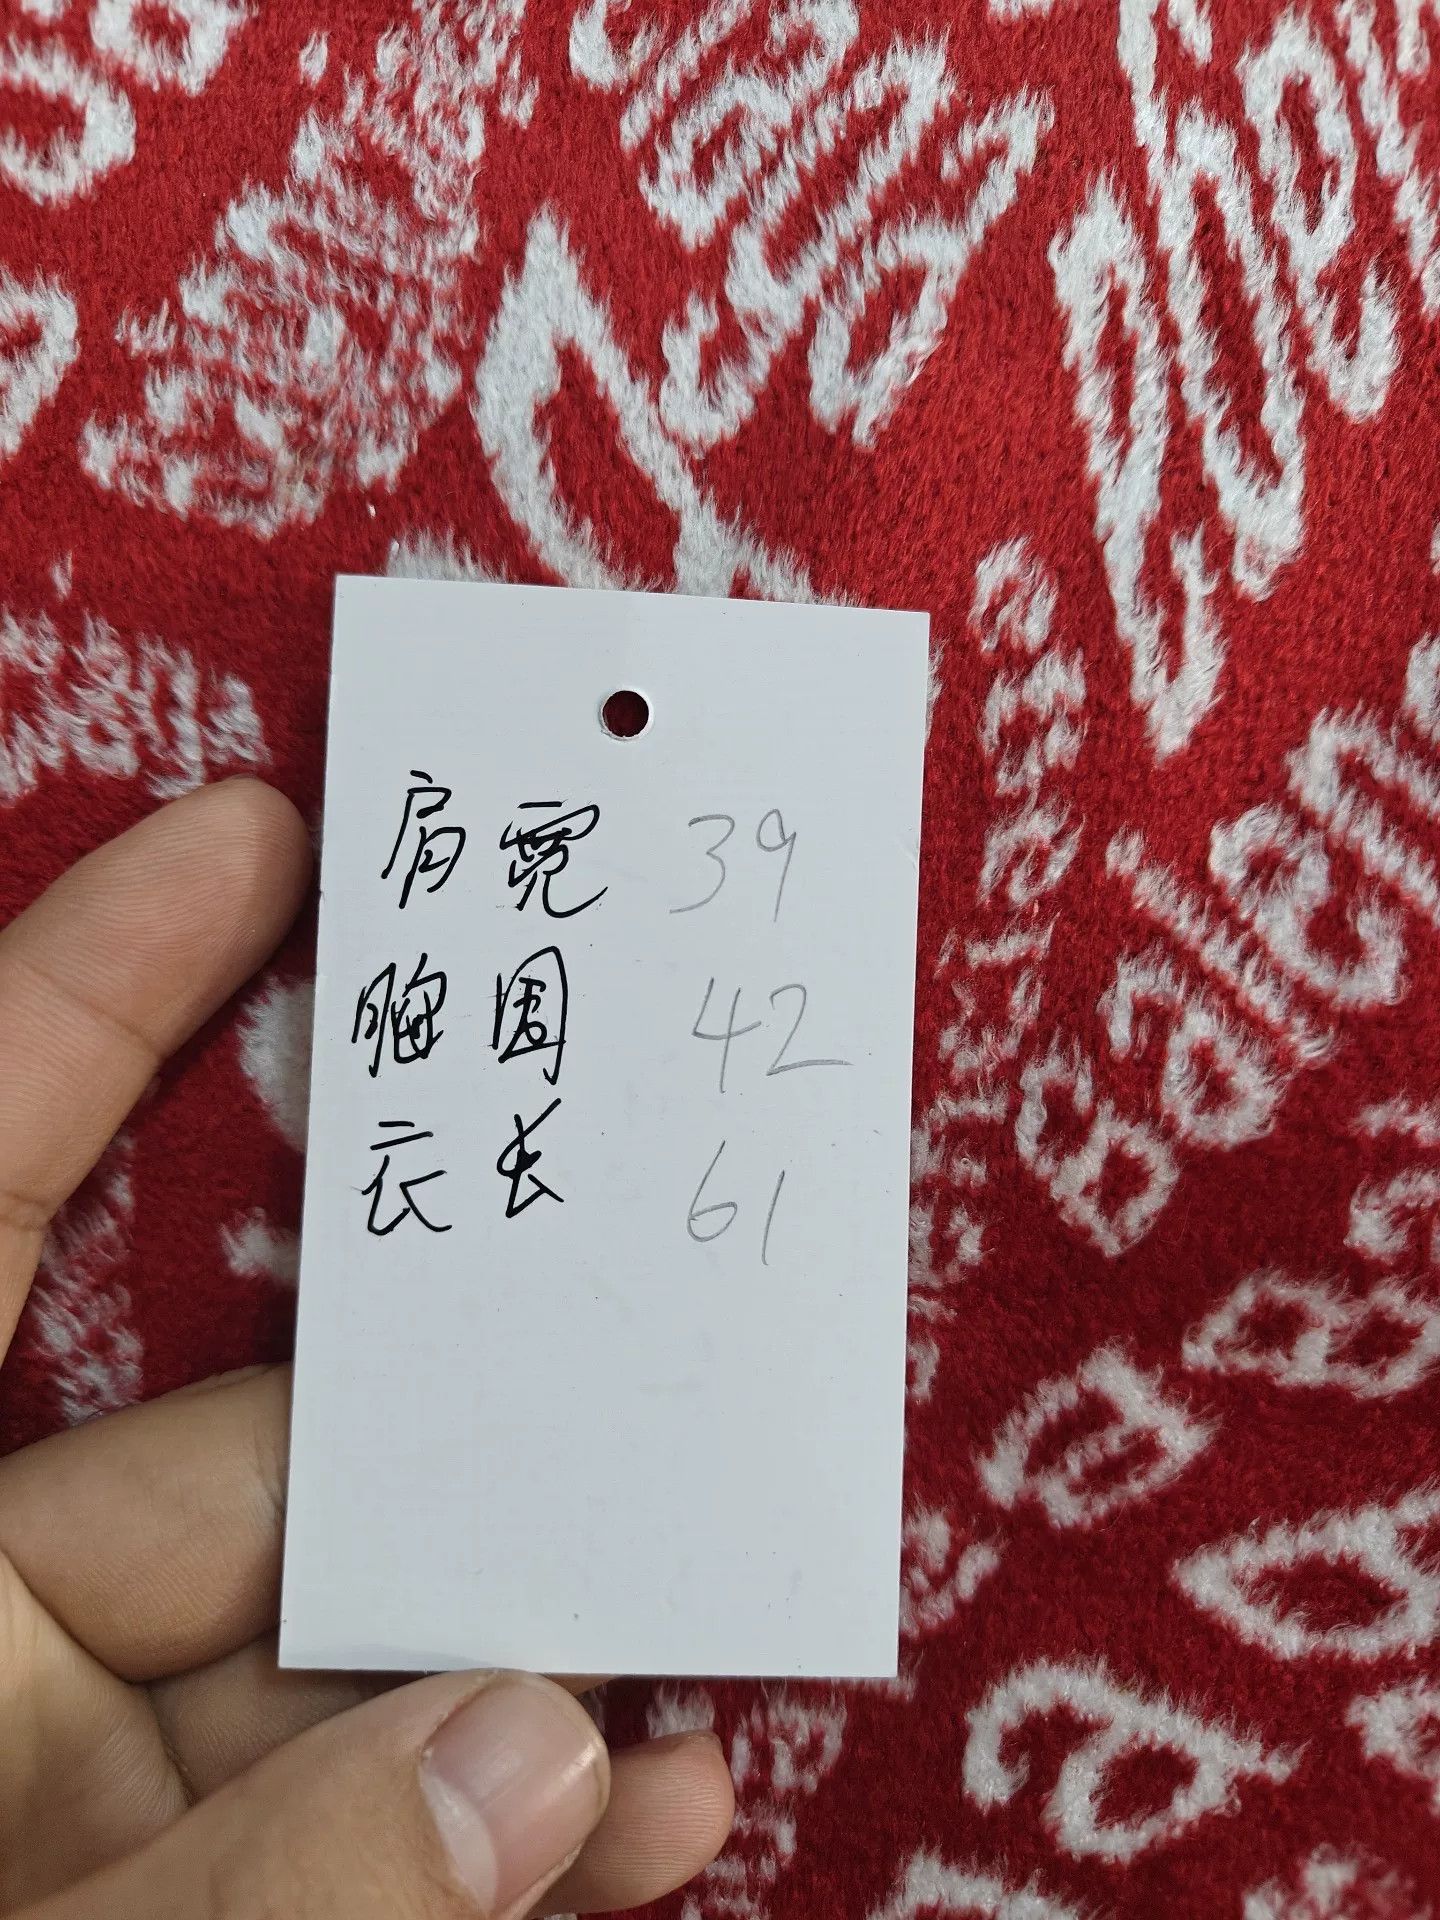 肩宽 39
胸围 42
衣长 61